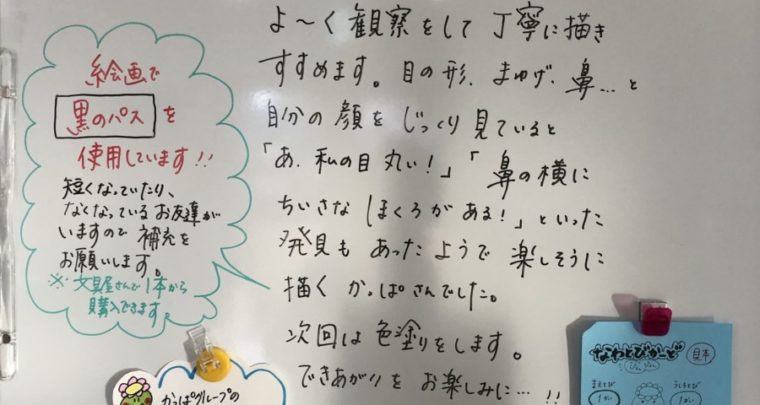 絵画で
黒のパスを
使用しています!!
短くなっていたり、
なくなっているお友達が
いますので補充を
お願いします。
※文具屋さんで1本から
購入できます。
よ〜く観察をして丁寧に描き
すすめます。目の形、まゆげ、鼻…と
自分の顔をじっくり見ていると
「あ、私の目丸い!」「鼻の横に
ちいさなほくろがある!」といった
発見もあったようで楽しそうに
描くかっぱさんでした。
次回は色塗りをします。
できあがりをお楽しみに…!!
かっぱグループの
なわとびかーど
見本
ぴょんぴょん
まえとび
うしろとび